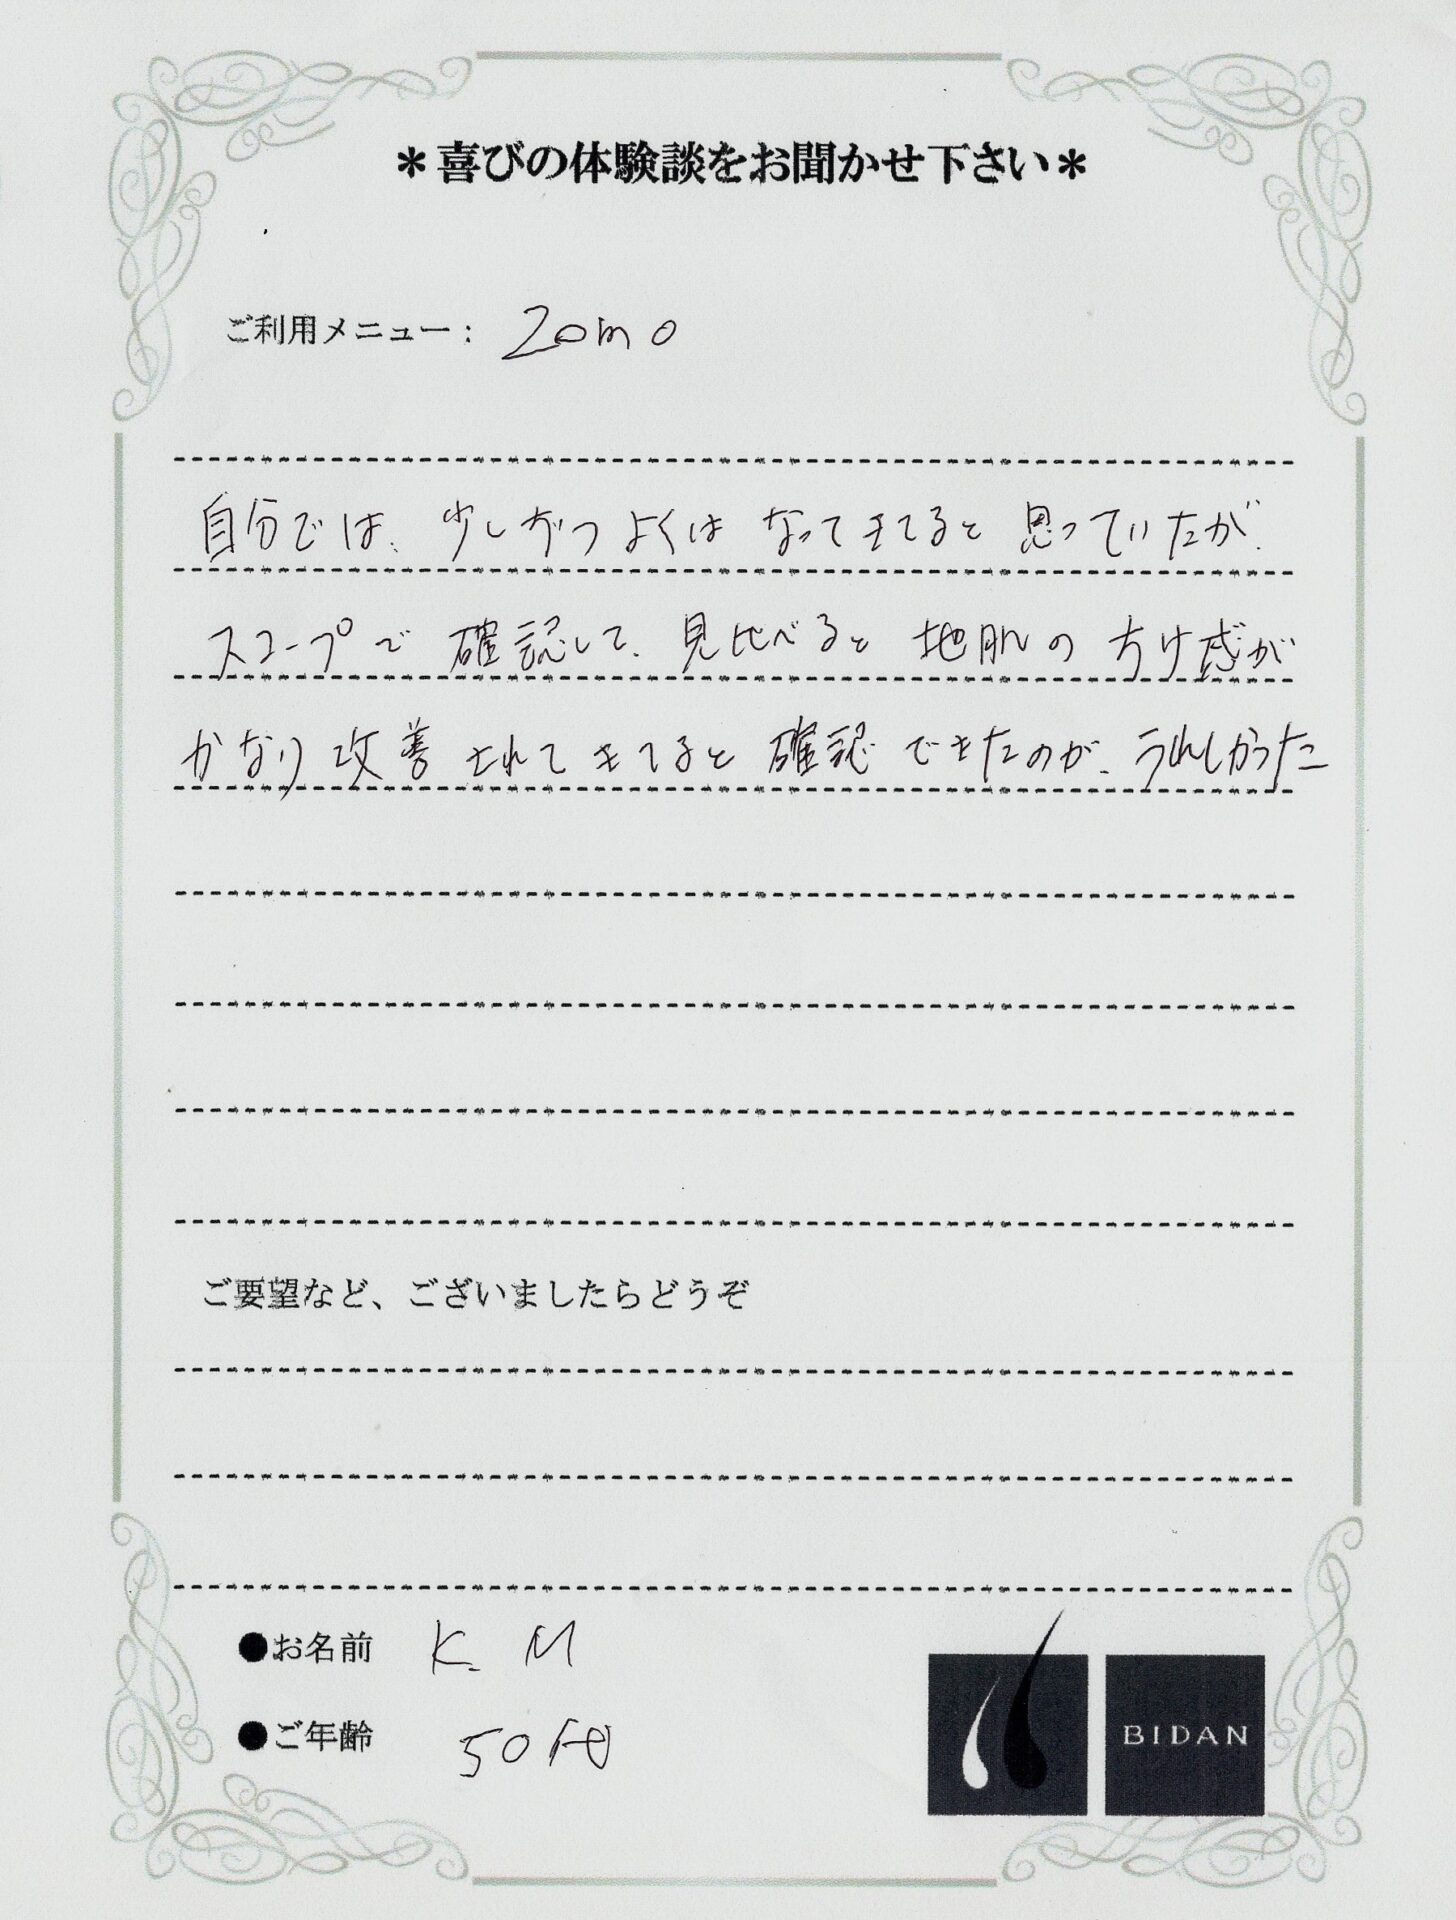 ＊喜びの体験談をお聞かせ下さい＊
ご利用メニュー： Zomo
自分では、少しずつよくはなってきてると思っていたが、
スコープで確認して、見比べると地肌の すけ感が
かなり改善されてきてると確認できたのが、うれしかった
ご要望など、ございましたらどうぞ
●お名前 K. M
●ご年齢 50代
BIDAN